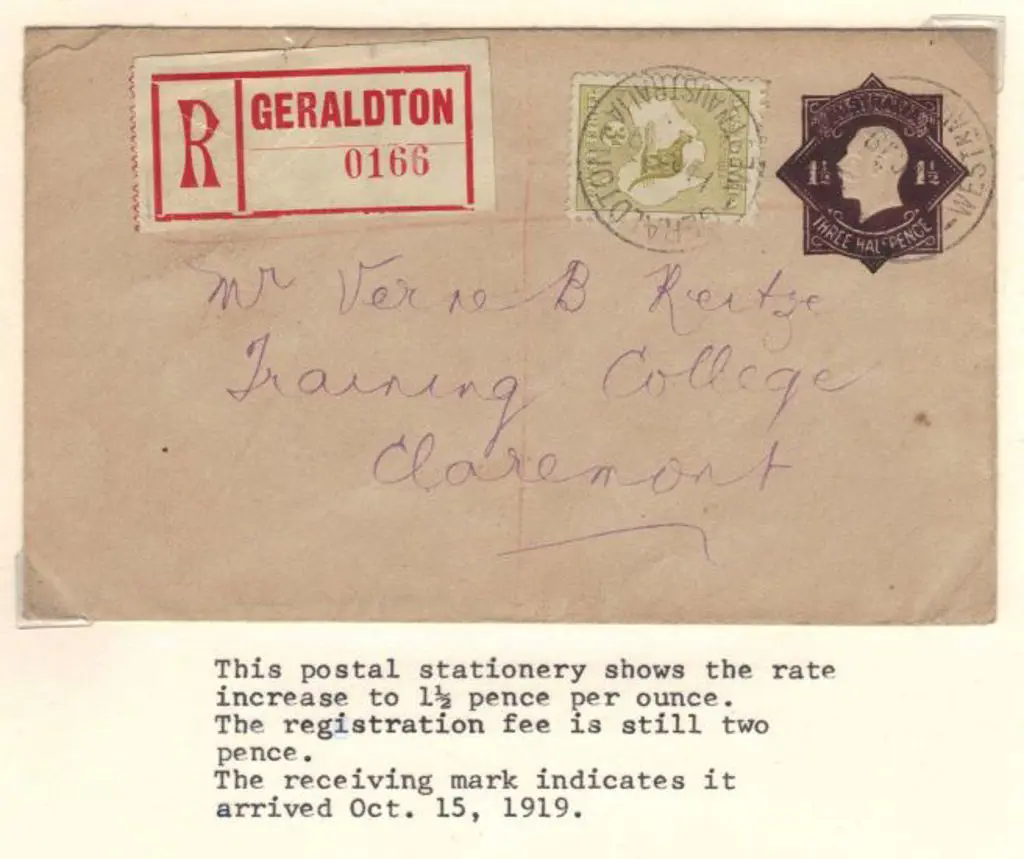 R GERALDTON
0166
GERALDTON
W. AUSTRALIA
3d
AUSTRALIA
1½ 1½
THREE HALFPENCE
WESTN
Mr Verne B Reitze
Training College
Claremont
This postal stationery shows the rate
increase to 1½ pence per ounce.
The registration fee is still two
pence.
The receiving mark indicates it
arrived Oct. 15, 1919.